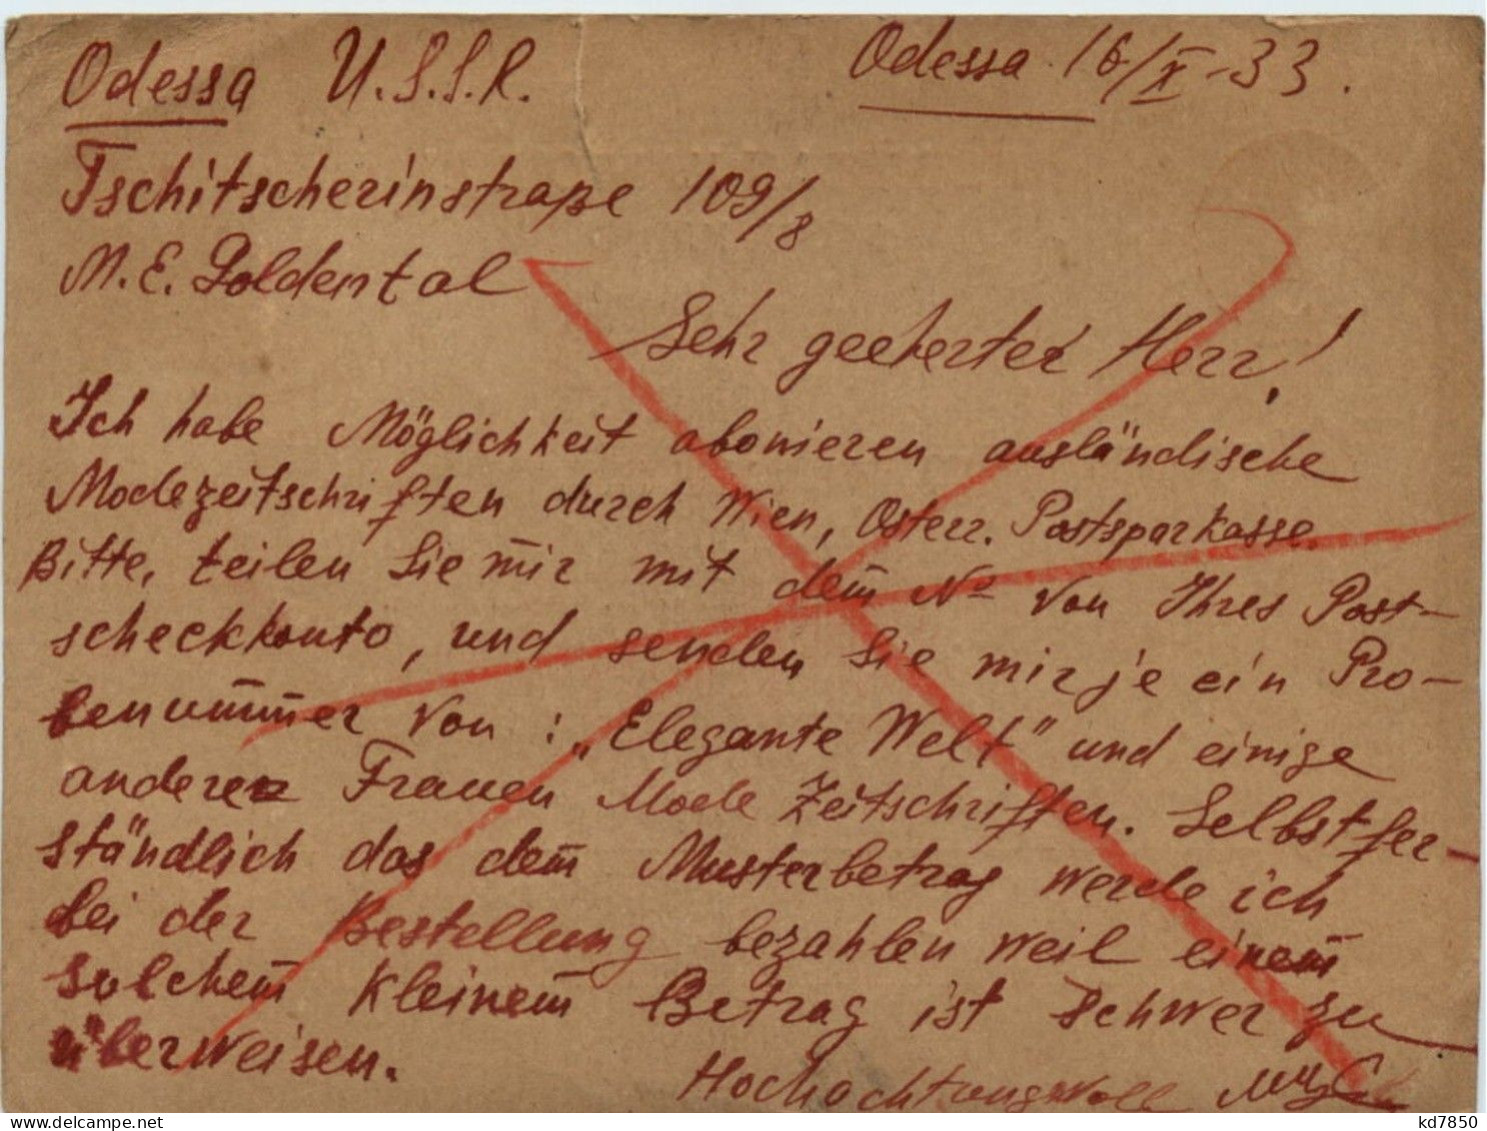 Odessa U.S.S.R. Odessa 16/X-33.
Tschitscherinstraße 109/8
M. E. Goldental
Sehr geeherter Herr!
Ich habe Möglichkeit abonieren ausländische
Modezeitschriften durch Wien, Österr. Postsparkasse.
Bitte, teilen Sie mir mit dem No von Ihres Post-
scheckkonto, und senden Sie mir je ein Pro-
benummer von: „Elegante Welt" und einige
anderen Frauen Mode Zeitschriften. Selbstfer-
ständlich das dem Musterbetrag werde ich
bei der Bestellung bezahlen weil einem
solchem kleinem Betrag ist schwer zu
überweisen.
Hochachtungsvoll
kd7850